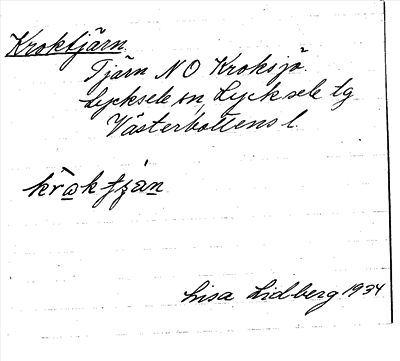 Kroktjärn
Tjärn NO Kroksjö
Lycksele sn, Lycksele tg
Västerbottens l.
kråktjän
Lisa Lidberg 1934